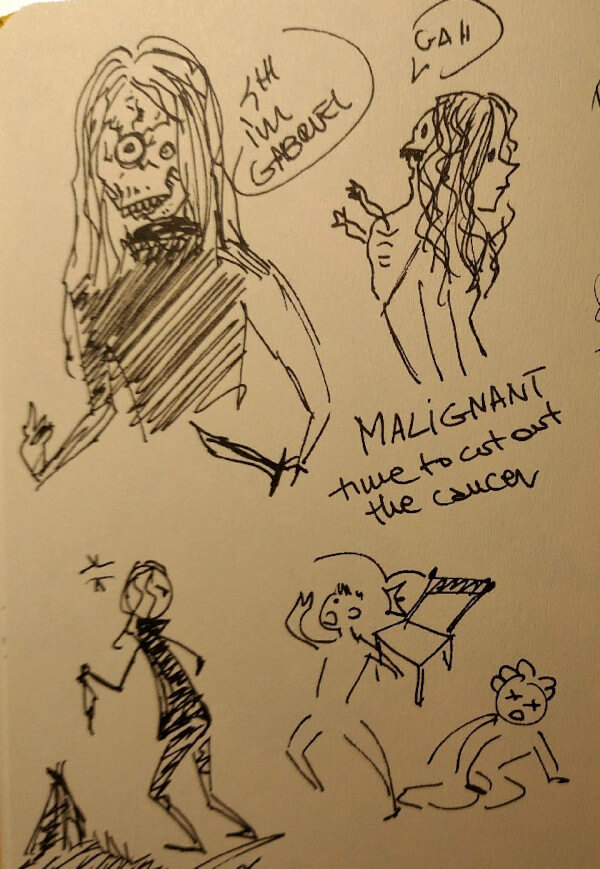 GAH
I'M
GABRIEL
MALIGNANT
time to cut out
the cancer